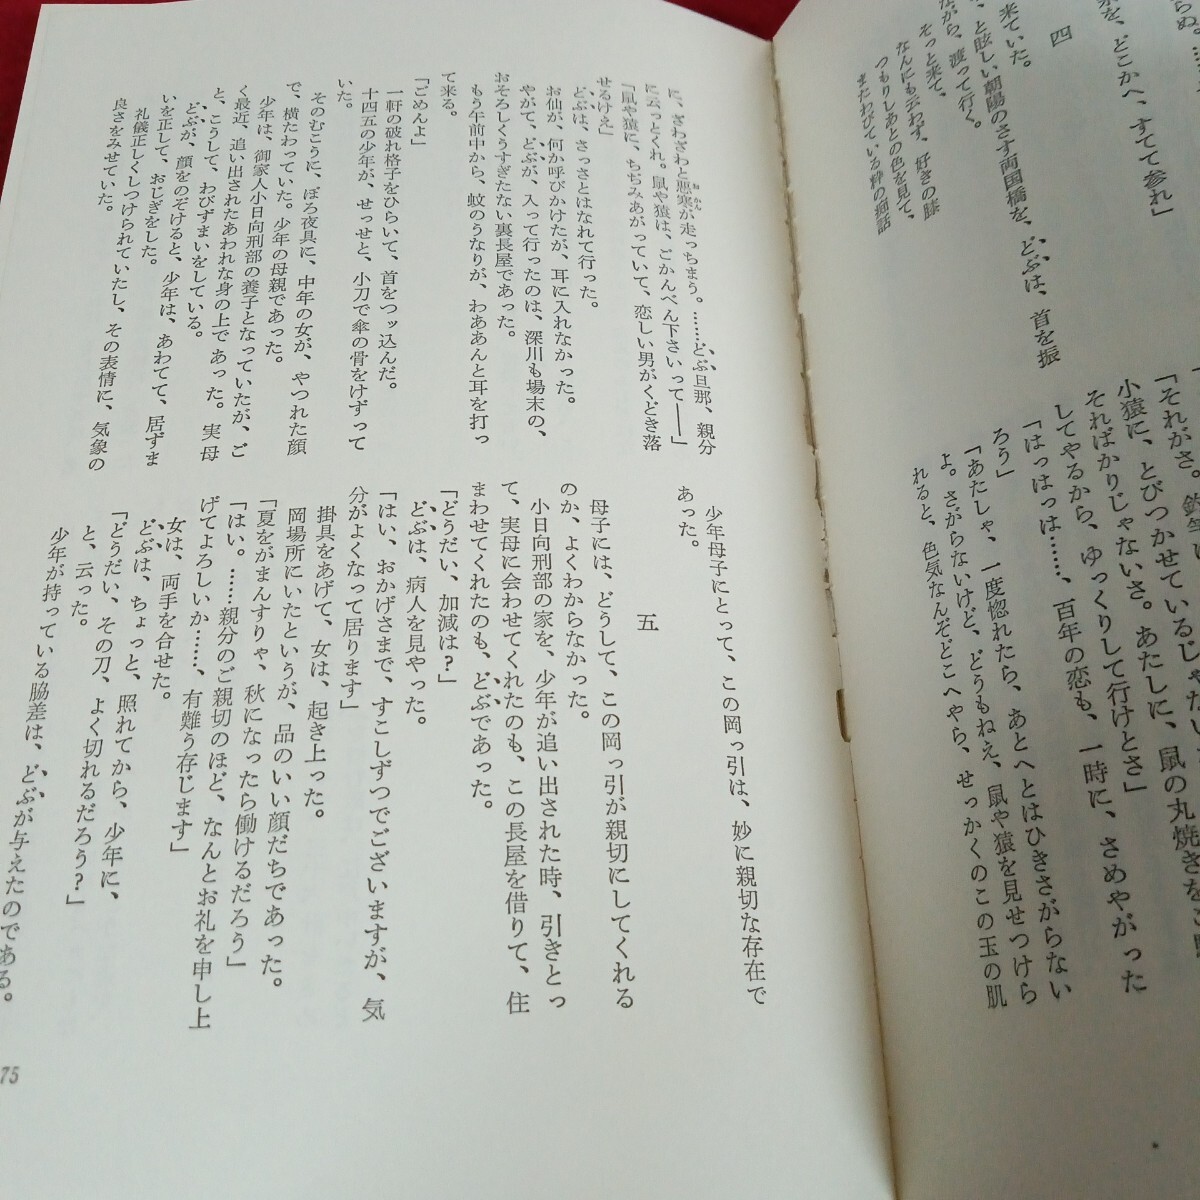 らぬ。……
を、どこかへ、すてて参れ」
四
来ていた。
と眩しい朝陽のさす両国橋を、どぶは、首を振
ながら、渡って行く。
そっと来て、
なんにも云わず、好きの膝
つもりしあとの色を見て、
またわびている粋の痴話
「それがさ。
小猿に、とびつかせているじゃない
そればかりじゃないさ。あたしに、鼠の丸焼きを
してやるから、ゆっくりして行けとさ」
「はっはっは……、百年の恋も、一時に、さめやがった
ろう」
「あたしゃ、一度惚れたら、あとへとはひきさがらない
よ。さがらないけど、どうもねえ、鼠や猿を見せつけら
れると、色気なんぞどこへやら、せっかくのこの玉の肌
に、ざわざわと悪寒が走っちまう。……どぶ旦那、親分
に云っとくれ。鼠や猿は、ごかんべん下さいって――」
「鼠や猿に、ちぢみあがっていて、恋しい男がくどき落
せるけえ」
どぶは、さっさとはなれて行った。
お仙が、何か呼びかけたが、耳に入れなかった。
やがて、どぶが、入って行ったのは、深川も場末の、
おそろしくうすぎたない裏長屋であった。
もう午前中から、蚊のうなりが、わああんと耳を打っ
て来る。
「ごめんよ」
一軒の破れ格子をひらいて、首をつッ込んだ。
十四五の少年が、せっせと、小刀で傘の骨をけずって
いた。
そのむこうに、ぼろ夜具に、中年の女が、やつれた顔
で、横たわっていた。少年の母親であった。
少年は、御家人小日向刑部の養子となっていたが、ご
く最近、追い出されたあわれな身の上であった。実母
と、こうして、わびずまいをしている。
どぶが、顔をのぞけると、少年は、あわてて、居ずま
いを正して、おじぎをした。
礼儀正しくしつけられていたし、その表情に、気象の
良さをみせていた。
少年母子にとって、この岡っ引は、妙に親切な存在で
あった。
五
母子には、どうして、この岡っ引が親切にしてくれる
のか、よくわからなかった。
小日向刑部の家を、少年が追い出された時、引きとっ
て、実母に会わせてくれたのも、この長屋を借りて、住
まわせてくれたのも、どぶであった。
「どうだい、加減は？」
どぶは、病人を見やった。
「はい、おかげさまで、すこしずつでございますが、気
分がよくなって居ります」
掛具をあげて、女は、起き上った。
岡場所にいたというが、品のいい顔だちであった。
「夏をがまんすりゃ、秋になったら働けるだろう」
「はい。……親分のご親切のほど、なんとお礼を申し上
げてよろしいか……、有難う存じます」
女は、両手を合せた。
どぶは、ちょっと、照れてから、少年に、
「どうだい、その刀、よく切れるだろう？」
と、云った。
少年が持っている脇差は、どぶが与えたのである。
75